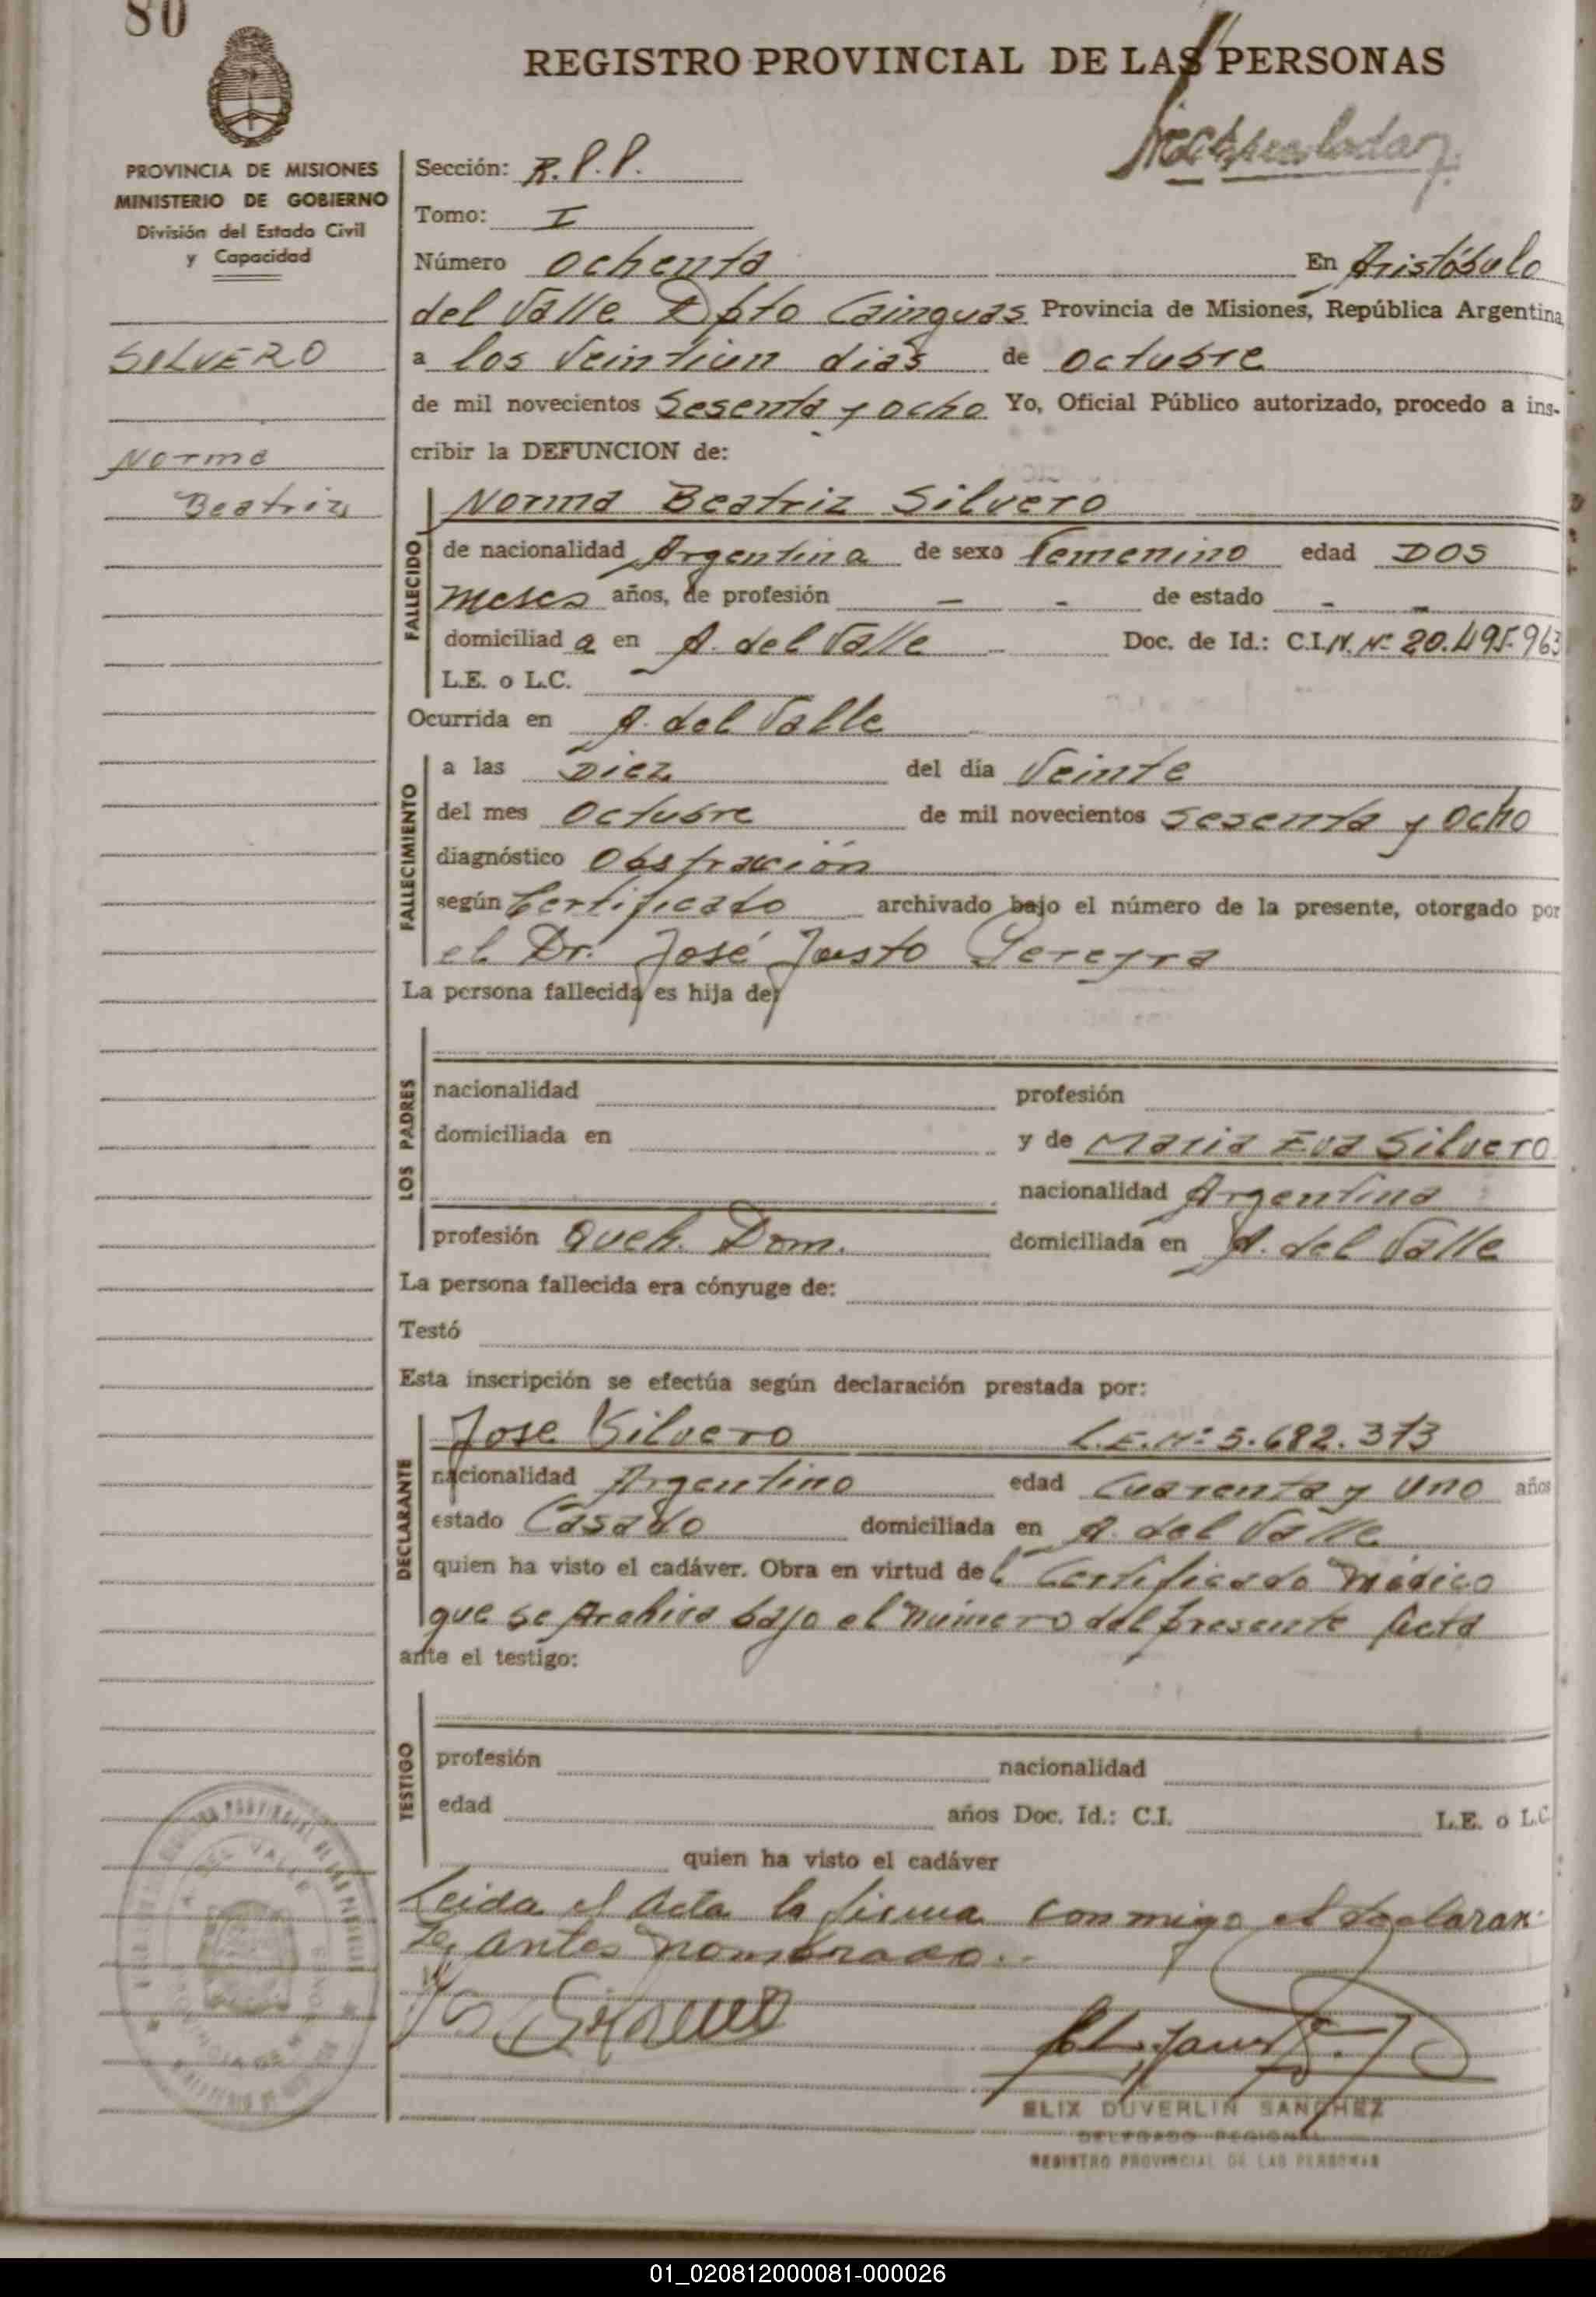 80
REGISTRO PROVINCIAL DE LAS PERSONAS
PROVINCIA DE MISIONES
MINISTERIO DE GOBIERNO
División del Estado Civil
y Capacidad
SILVERO
Norma
Beatriz
Sección: R.P.P.
Tomo: I
Número Ochenta En Aristóbulo
del Valle Dpto Cainguas Provincia de Misiones, República Argentina,
a los Veintiun dias de Octubre
de mil novecientos Sesenta y ocho Yo, Oficial Público autorizado, procedo a ins-
cribir la DEFUNCION de:
FALLECIDO
Norma Beatriz Silvero
de nacionalidad Argentina de sexo Femenino edad DOS
Meses años, de profesión - - de estado - -
domiciliad a en A. del Valle Doc. de Id.: C.I.N. Nº 20.495.963
L.E. o L.C.
Ocurrida en A. del Valle
FALLECIMIENTO
a las Diez del día Veinte
del mes Octubre de mil novecientos Sesenta y Ocho
diagnóstico Obstrucción
según Certificado archivado bajo el número de la presente, otorgado por
el Dr. José Justo Pereyra
La persona fallecida es hija de:
LOS PADRES
nacionalidad profesión
domiciliada en y de Maria Eva Silvero
nacionalidad Argentina
profesión Queh. Dom. domiciliada en A. del Valle
La persona fallecida era cónyuge de:
Testó
Esta inscripción se efectúa según declaración prestada por:
DECLARANTE
Jose Silvero L.E.Nº 5.682.373
nacionalidad Argentino edad Cuarenta y Uno años
estado Casado domiciliada en A. del Valle
quien ha visto el cadáver. Obra en virtud del Certificado Médico
que se Archiva bajo el número del presente Acta
ante el testigo:
TESTIGO
profesión nacionalidad
edad años Doc. Id.: C.I. L.E. o L.C.
quien ha visto el cadáver
Leida el Acta la firma conmigo el declaran-
te, antes nombrado.-
ELIX DUVERLIN SANCHEZ
DELEGADO REGIONAL
REGISTRO PROVINCIAL DE LAS PERSONAS
01_020812000081-000026